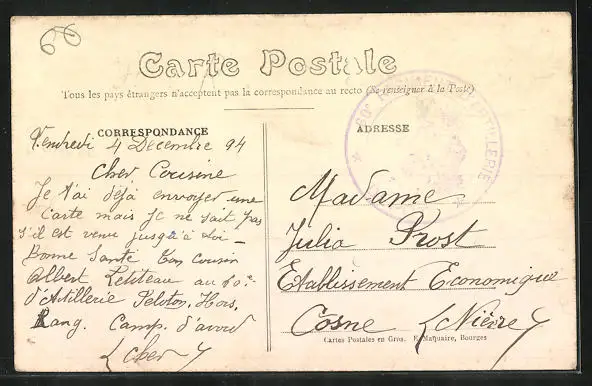 Carte Postale
Tous les pays étrangers n'acceptent pas la correspondance au recto (Se renseigner à la Poste)
CORRESPONDANCE
ADRESSE
Vendredi 4 Decembre 94
Cher Cousine
Je t'ai déjà envoyer une
carte mais je ne sait pas
s'il est venu jusqu'à toi -
Bonne Santé ton cousin
Albert au
d'Artillerie Peloton, Hors,
Rang. Camp. d'avord
(Cher)
Madame
Julia Prost
Etablissement Economique
Cosne (Nièvre)
Cartes Postales en Gros. E. Maquaire, Bourges
REGIMENT D'ARTILLERIE